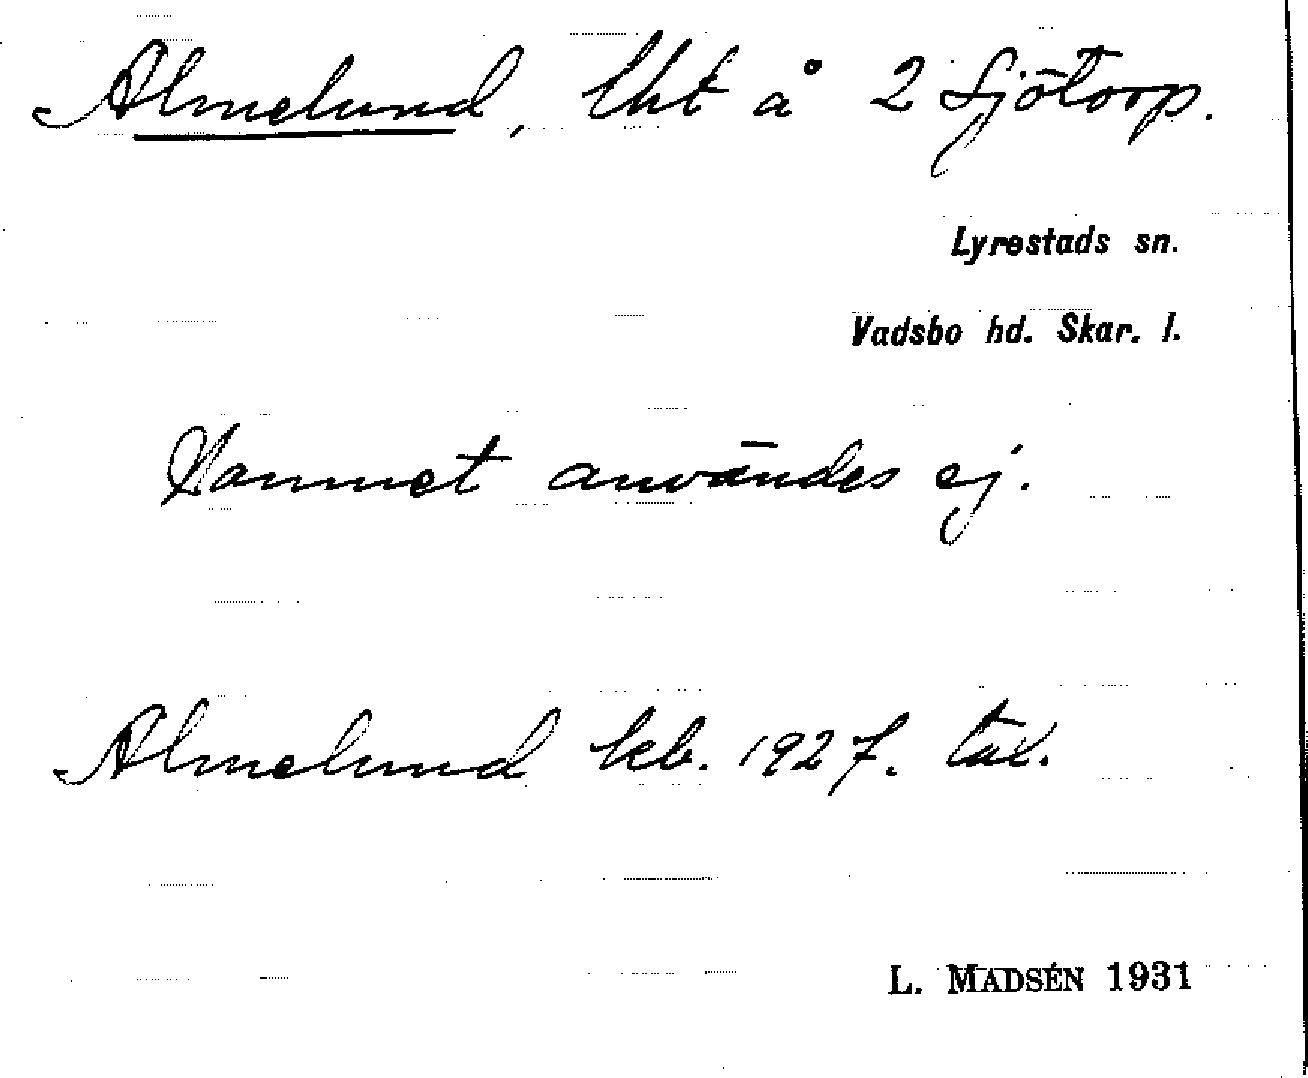 Almelund, lht å 2 Sjötorp.
Lyrestads sn.
Vadsbo hd. Skar. l.
Namnet användes ej.
Almelund kb. 1927. täx.
L. MADSÉN 1931